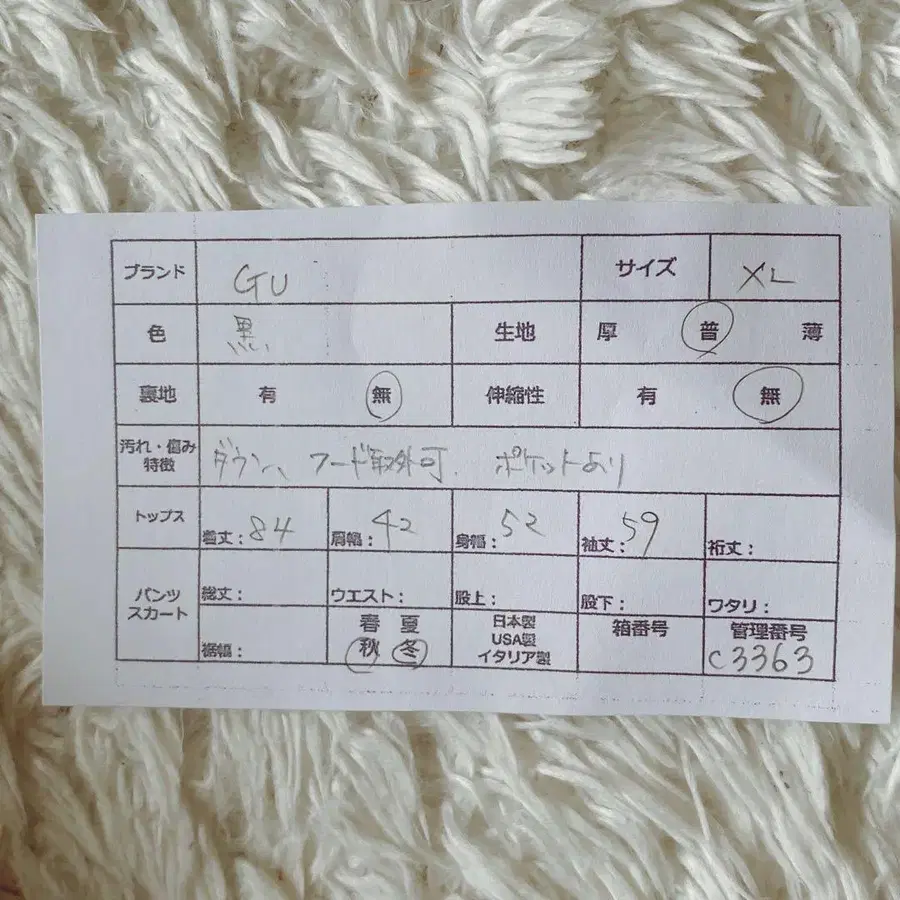 ブランド GU サイズ XL
色 黒 生地 厚 普 薄
裏地 有 無 伸縮性 有 無
汚れ・傷み
特徴
ダウン、フード取外可. ポケットあり
トップス 着丈：84 肩幅：42 身幅：52 袖丈：59 裄丈：
パンツ
スカート
総丈： ウエスト： 股上： 股下： ワタリ：
裾幅：
春 夏
秋 冬
日本製
USA製
イタリア製
箱番号
管理番号
C3363